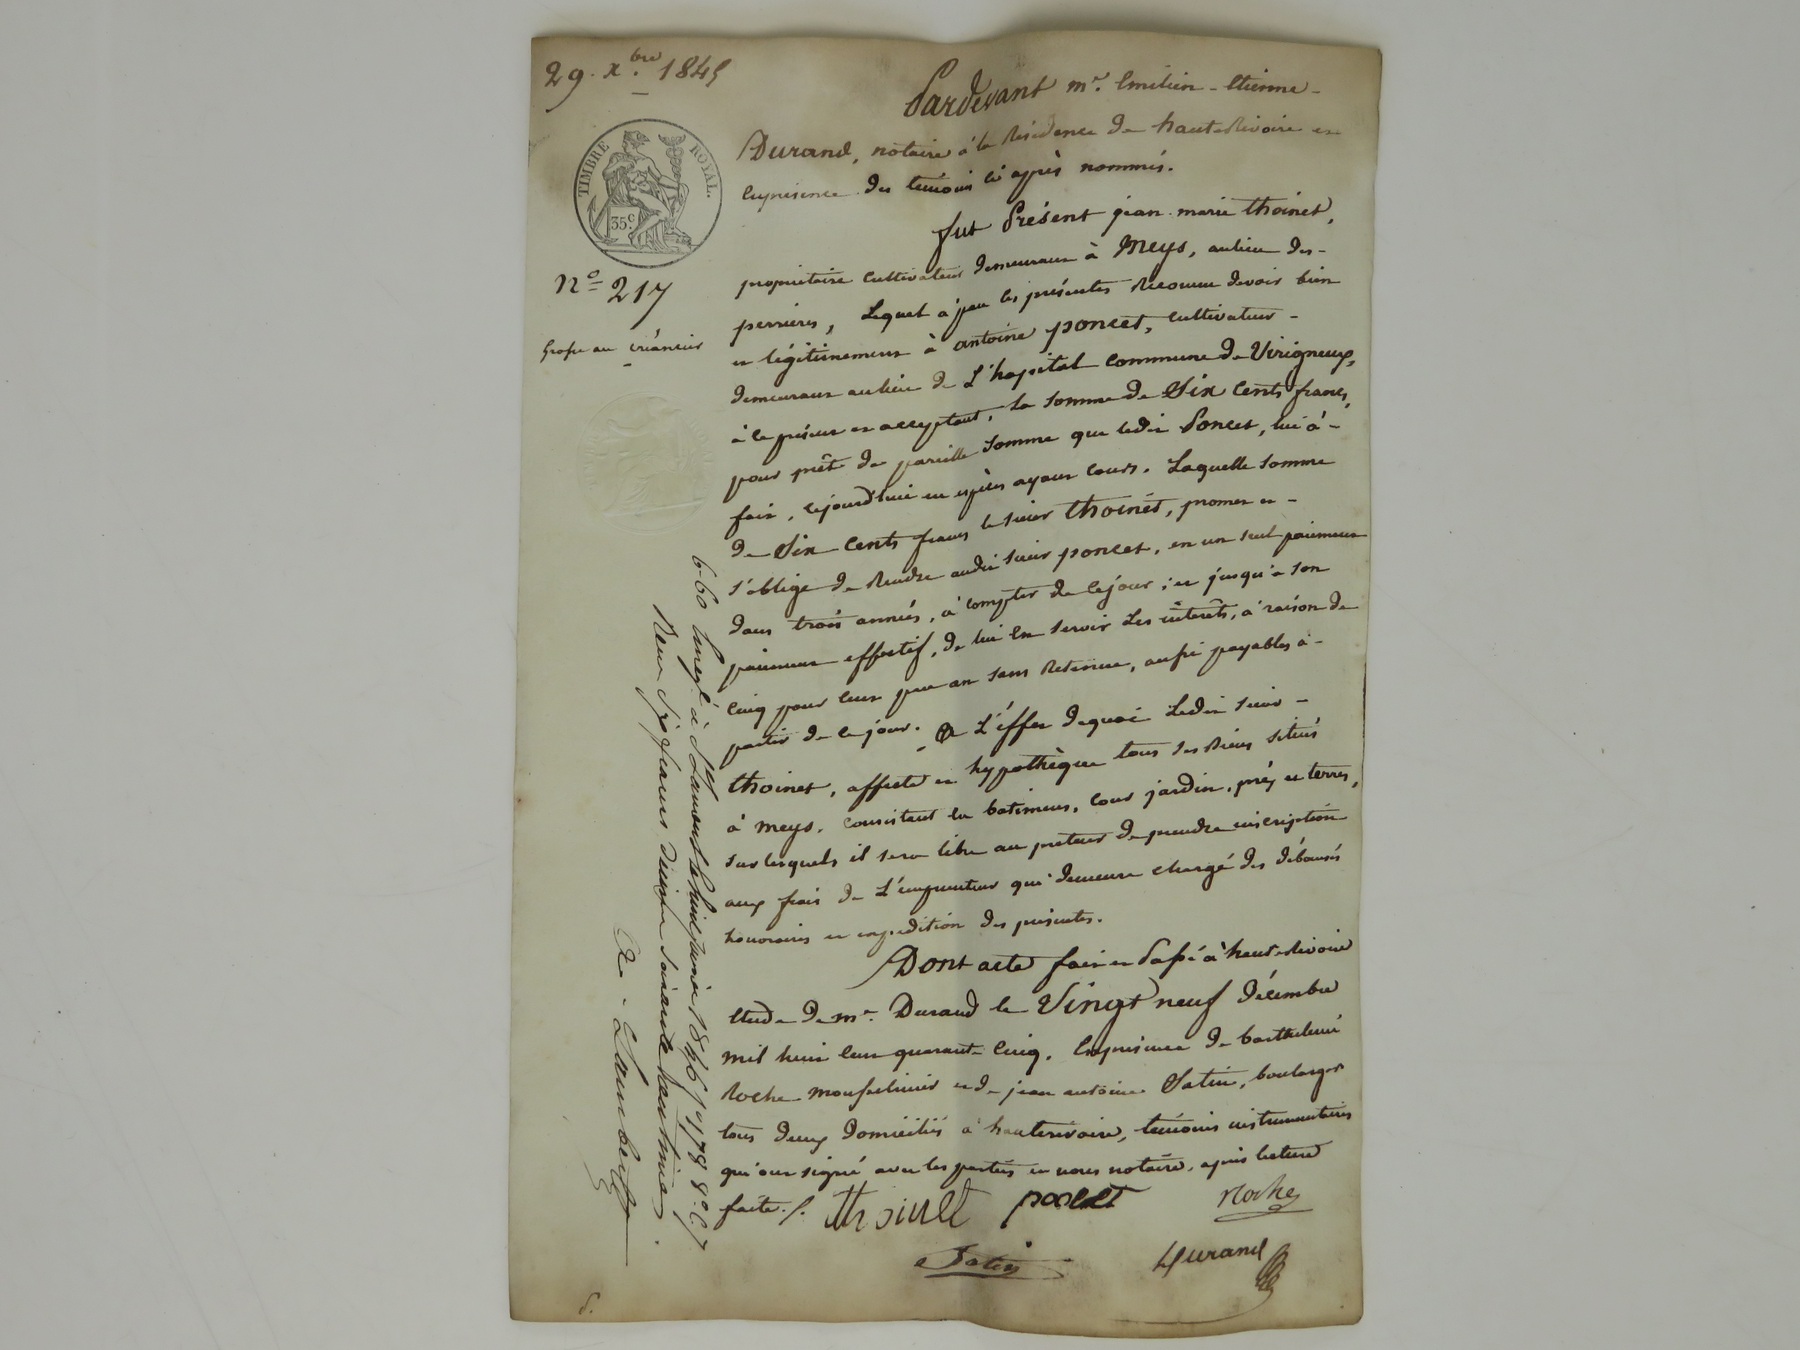 29. xbre 1845
TIMBRE ROYAL.
35 c.
No 217
grosse au créancier
Pardevant me. Emilien - Etienne -
Durand, notaire à la Résidence de haute Rivoire et
en présence des témoins ci après nommés.
fut Présent jean marie thoinet,
propriétaire cultivateur demeurant à Meys, au lieu des -
perrieres, Lequel a par les présentes Reconnu devoir bien
et légitimement à antoine poncet, cultivateur -
demeurant au lieu de L'hopital commune de Virigneux,
à ce présent et acceptant, la somme de Six Cents francs,
pour prêt de pareille somme que ledit Poncet, lui à -
fait, cejourd'hui en espèces ayant cours. Laquelle somme
de Six Cents francs le sieur thoinet, promet et -
s'oblige de Rendre audit sieur poncet, en un seul paiement
dans trois années, à compter de ce jour ; et jusqu'a son
paiement effectif, de lui en servir Les intérêts, à raison de
cinq pour cent par an sans Retenue, aussi payables à -
partir de ce jour. A L'éffet de quoi Ledit sieur -
thoinet, affecte et hypothèque tous ses Biens situés
à meys, consistant en batiment, cour jardin, prés et terres,
sur lesquels il sera libre au preteur de prendre inscription
aux frais de L'emprunteur qui demeure chargé des déboursés
honoraires et expedition des présentes.
Dont acte fait et Passé à haute Rivoire
étude de me. Durand le Vingt neuf décembre
mil huit cent quarante cinq, En présence de barthelemi
Roche mousselinier et de jean antoine Satin, boulanger
tous deux domiciliés à hauterivoire, témoins instrumentaires
qui ont signé avec les parties et nous notaire, après lecture
faite ./.
thoinet poncet Roche
Satin Durand
660 Enregé à St Laurent le huit janvier 1846 fo 178 Ro C 7
Reçu six francs dixième soixante centimes.